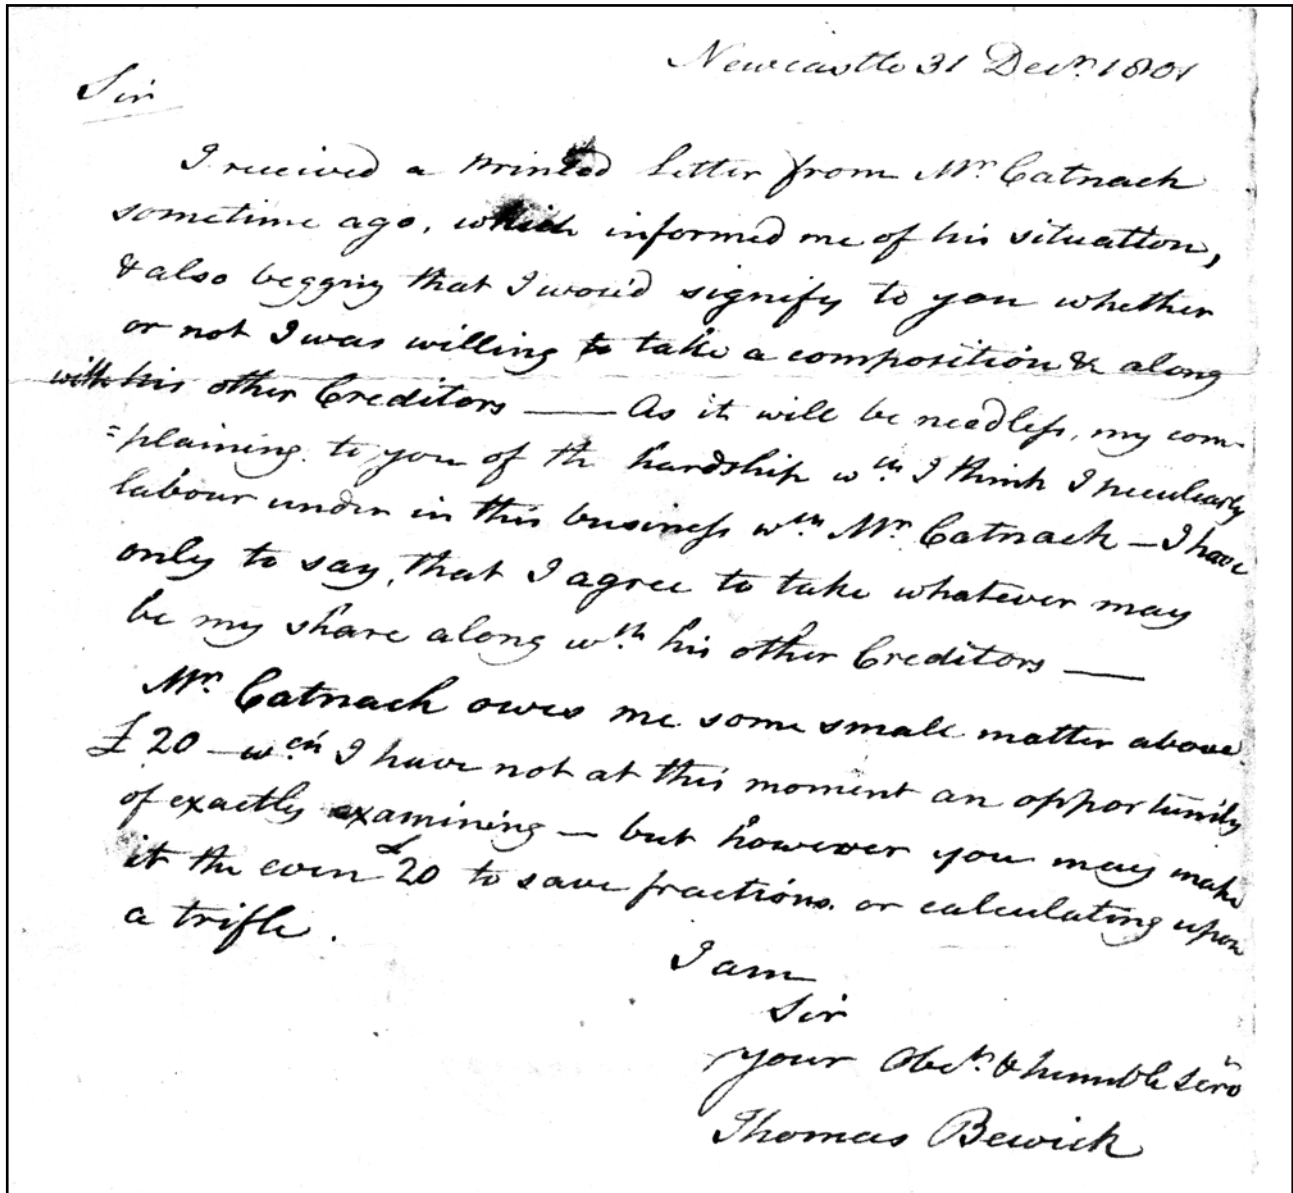 Newcastle 31 Decr. 1801
Sir
I received a printed letter from Mr. Catnach
sometime ago, which informed me of his situation,
& also begging that I wou'd signify to you whether
or not I was willing to take a composition & along
with his other Creditors —— As it will be needless, my com-
=plaining to you of the hardship wch. I think I peculiarly
labour under in this business wth. Mr. Catnach — I have
only to say, that I agree to take whatever may
be my share along wth. his other Creditors ——
Mr. Catnach owes me some small matter above
£20 — wch. I have not at this moment an opportunity
of exactly examining — but however you may make
it the even £20 to save fractions. or calculating upon
a trifle.
I am
Sir
your Obet. & humble Servt
Thomas Bewick